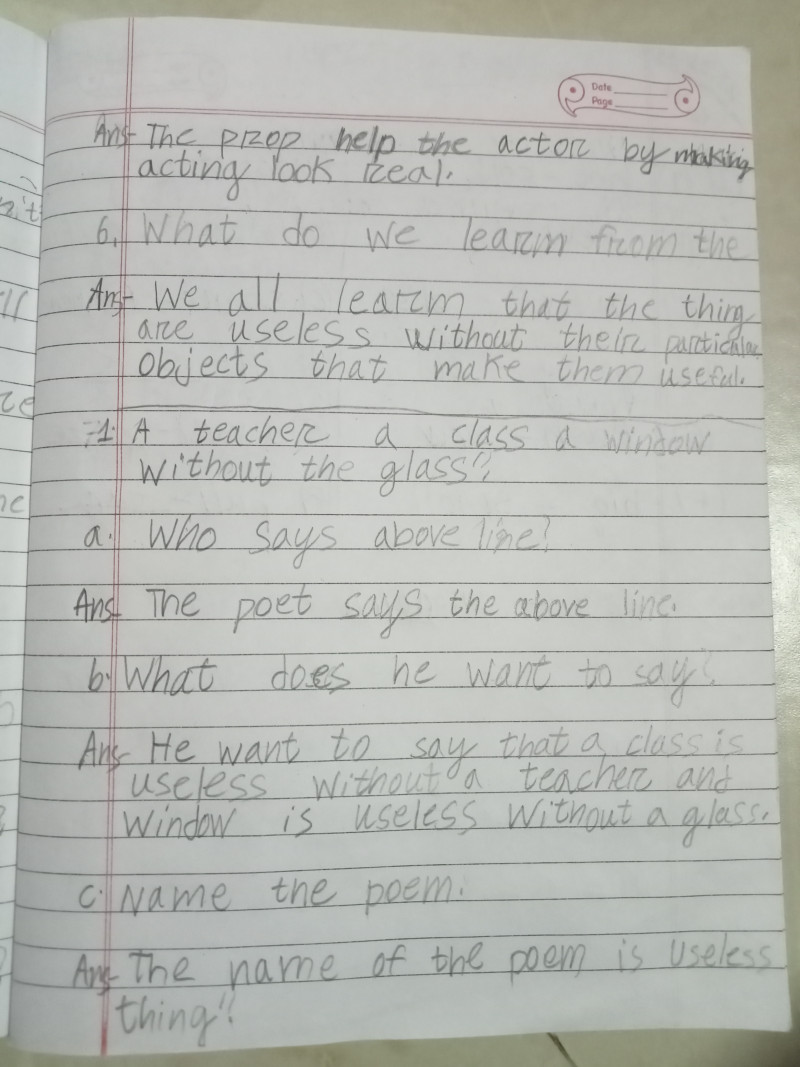 Date
Page
Ans- The prop help the actor by making
acting look real.
6. What do we learm from the
Ans- We all learm that the thing
are useless without their particular
objects that make them useful.
-1. A teacher a class a window
without the glass",
a. Who says above line?
Ans- The poet says the above line.
b. What does he want to say?
Ans- He want to say that a class is
useless without a teacher and
window is useless without a glass.
c. Name the poem.
Ans- The name of the poem is useless
thing".